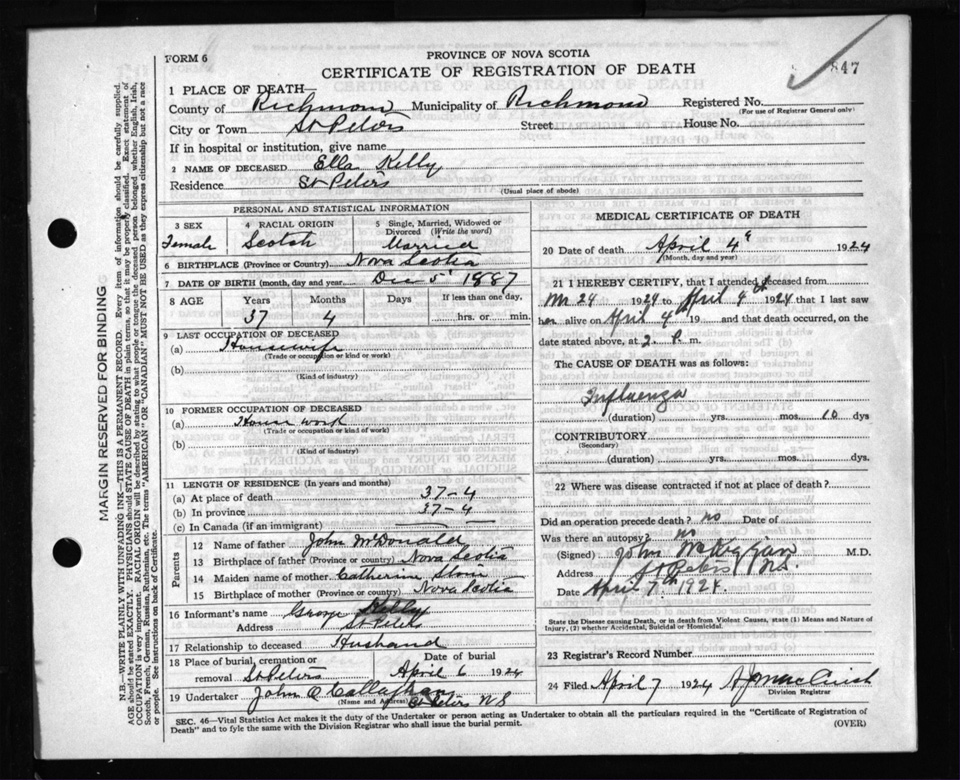 FORM 6
PROVINCE OF NOVA SCOTIA
CERTIFICATE OF REGISTRATION OF DEATH
847
1 PLACE OF DEATH
County of Richmond Municipality of Richmond Registered No.
(For use of Registrar General only)
City or Town St Peters Street House No.
If in hospital or institution, give name
2 NAME OF DECEASED Ella Kelly
Residence St Peters
(Usual place of abode)
PERSONAL AND STATISTICAL INFORMATION
3 SEX Female
4 RACIAL ORIGIN Scotch
5 Single, Married, Widowed or Divorced (Write the word) Married
6 BIRTHPLACE (Province or Country) Nova Scotia
7 DATE OF BIRTH (month, day and year) Dec 5 1887
8 AGE Years Months Days If less than one day,
37 4 hrs. or min.
9 LAST OCCUPATION OF DECEASED
(a) Housewife
(Trade or occupation or kind or work)
(b)
(Kind of industry)
10 FORMER OCCUPATION OF DECEASED
(a) House work
(Trade or occupation or kind of work)
(b)
(Kind of industry)
11 LENGTH OF RESIDENCE (In years and months)
(a) At place of death 37-4
(b) In province 37-4
(c) In Canada (if an immigrant)
Parents
12 Name of father John McDonald
13 Birthplace of father (Province or country) Nova Scotia
14 Maiden name of mother Catherine
15 Birthplace of mother (Province or country) Nova Scotia
16 Informant's name George Kelly
Address St Peters
17 Relationship to deceased Husband
18 Place of burial, cremation or removal St Peters
Date of burial April 6 1924
19 Undertaker John O Callaghan
(Name and Address) St Peters NS
MEDICAL CERTIFICATE OF DEATH
20 Date of death April 4 1924
(Month, day and year)
21 I HEREBY CERTIFY, that I attended deceased from
24 1924 to April 4 1924 that I last saw
her alive on April 4 19 and that death occurred, on
date stated above, at 2 P. m.
The CAUSE OF DEATH was as follows:
Influenza
(duration) yrs. mos. 10 dys
CONTRIBUTORY
(Secondary)
(duration) yrs. mos. dys.
22 Where was disease contracted if not at place of death?
Did an operation precede death? no Date of
Was there an autopsy? no
(Signed) John M.D.
Address St Peters N.S.
Date April 7th 1924.
State the Disease causing Death, or in death from Violent Causes, state (1) Means and Nature of Injury, (2) whether Accidental, Suicidal or Homicidal.
23 Registrar's Record Number
24 Filed April 7 1924
Division Registrar
SEC. 46—Vital Statistics Act makes it the duty of the Undertaker or person acting as Undertaker to obtain all the particulars required in the "Certificate of Registration of
Death" and to fyle the same with the Division Registrar who shall issue the burial permit. (OVER)
MARGIN RESERVED FOR BINDING
N.B.—WRITE PLAINLY WITH UNFADING INK—THIS IS A PERMANENT RECORD. Every item of information should be carefully supplied.
AGE should be stated EXACTLY. PHYSICIANS should STATE CAUSE OF DEATH in plain terms, so that it may be properly classified. Exact statement of
OCCUPATION is very important. RACIAL ORIGIN will be described by stating to what people or tongue the deceased person belonged whether English, Irish,
Scotch, French, German, Russian, Ruthenian, etc. The terms "AMERICAN" OR "CANADIAN" MUST NOT BE USED as they express citizenship but not a race
or people. See instructions on back of Certificate.